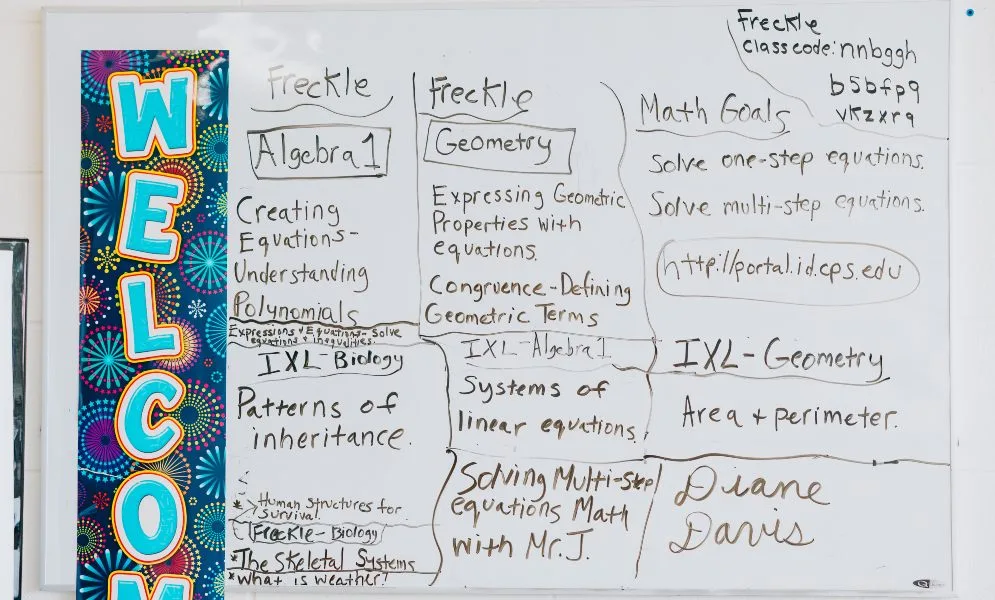 WELCOM
Freckle
Algebra 1
Creating
Equations-
Understanding
Polynomials
Expressions & Equations- Solve
equations & inequalities.
IXL-Biology
Patterns of
inheritance.
* Human Structures for
Survival.
Freckle-Biology
*The Skeletal Systems
*What is weather?
Freckle
Geometry
Expressing Geometric
Properties with
equations.
Congruence-Defining
Geometric Terms
IXL-Algebra 1
Systems of
linear equations
Solving Multi-Step
equations Math
with Mr. J.
Freckle
class code: nnbggh
b5bfpq
vkzxrq
Math Goals
Solve one-step equations.
Solve multi-step equations.
http://portal.id.cps.edu
IXL-Geometry
Area + perimeter.
Diane
Davis